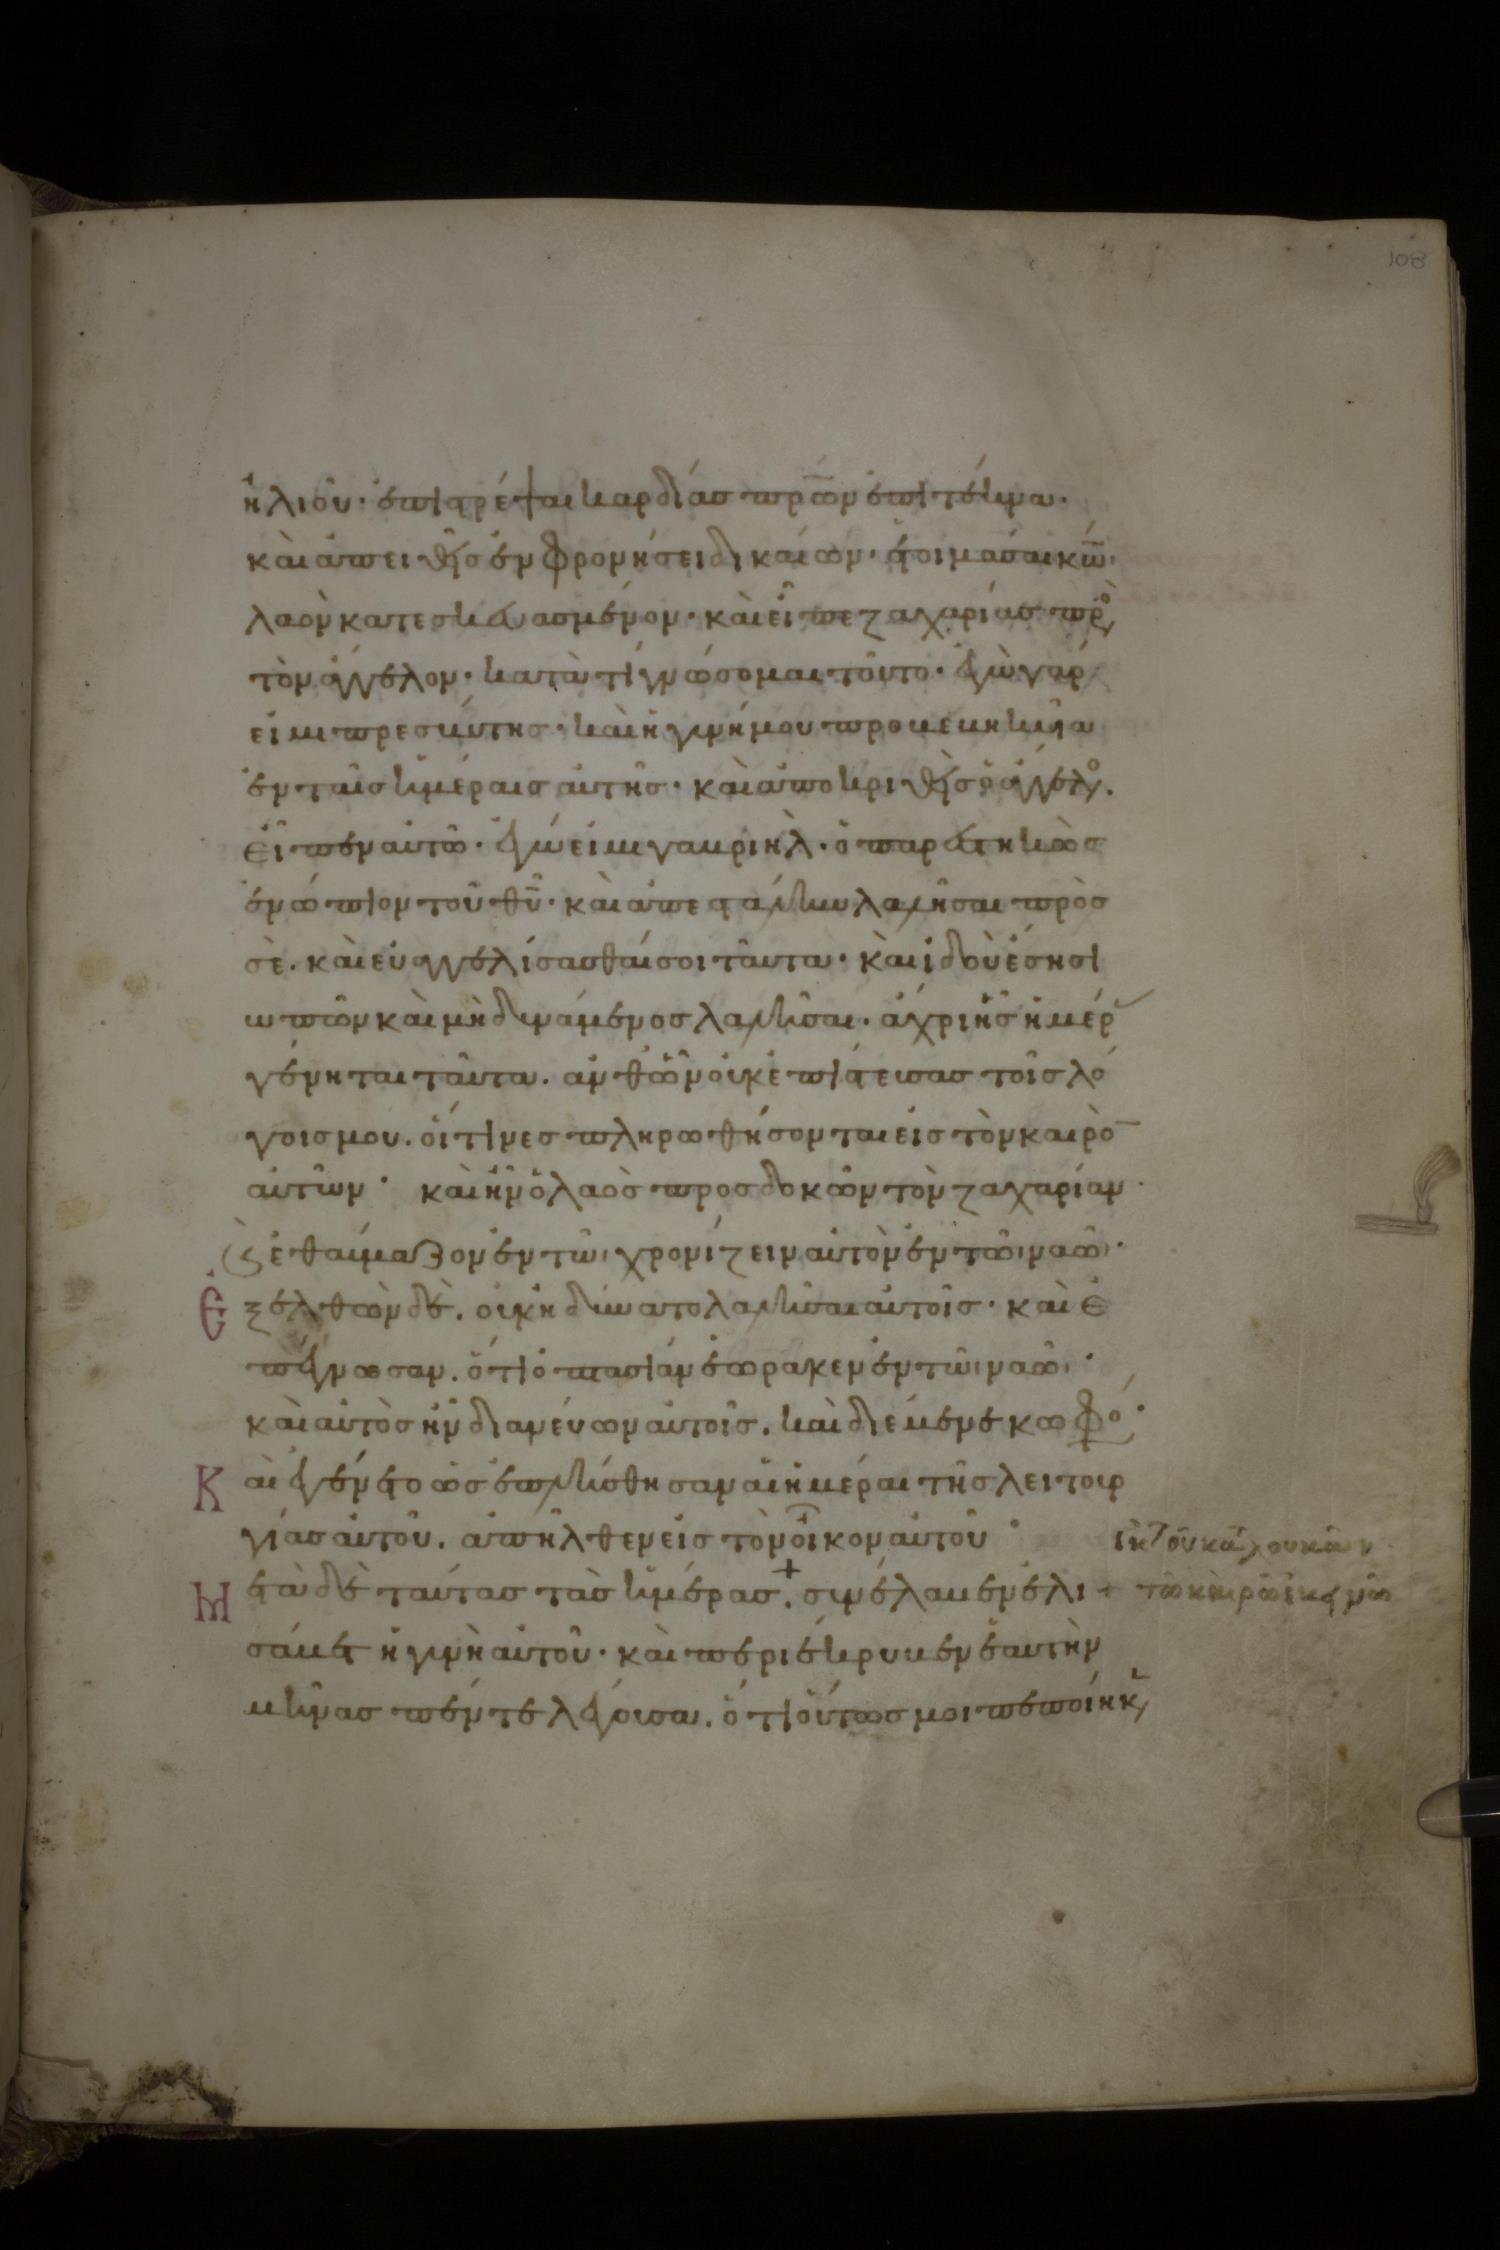 108
ἡλιοῦ· ἐπιστρέψαι καρδίας πρων ἐπὶ τέκνα·
καὶ ἀπειθεῖς ἐν φρονήσει δικαίων· ἑτοιμάσαι κω
λαὸν κατεσκευασμένον· καὶ εἶπε ζαχαρίας πρὸ
τὸν ἄγγελον· κατὰ τί γνώσομαι τοῦτο· ἐγὼ γάρ
εἰμι πρεσβύτης· καὶ ἡ γυνή μου προβεβηκυῖα
ἐν ταῖς ἡμέραις αὐτῆς· καὶ ἀποκριθεὶς ὁ ἄγγελο.
εἶπεν αὐτῶ· ἐγώ εἰμι γαβριὴλ· ὁ παρεστηκὼς
ἐνώπιον τοῦ θυ· καὶ ἀπεστάλην λαλῆσαι πρὸς
σὲ. καὶ εὐαγγελίσασθαί σοι ταῦτα· καὶ ἰδοὺ ἔσῃ σι
ωπῶν καὶ μὴ δυνάμενος λαλῆσαι. ἄχρι ἧς ἡμέρ
γένηται ταῦτα. ἀνθ ὧν οὐκ ἐπίστευσας τοῖς λό
γοις μου. οἵτινες πληρωθήσονται εἰς τὸν καιρὸ
αὐτῶν· καὶ ἦν ὁ λαὸς προσδοκῶν τὸν ζαχαρίαν·
ϗ ἐθαύμαζον ἐν τῶι χρονίζειν αὐτὸν ἐν τῶι ναῶι·
Ἐξελθὼν δὲ. οὐκ ἠδύνατο λαλῆσαι αὐτοῖς· καὶ ἐ
πέγνωσαν. ὅτι ὀπτασίαν ἑώρακεν ἐν τῶι ναῶι·
καὶ αὐτὸς ἦν διανεύων αὐτοῖς. καὶ διέμενε κωφό·
Καὶ ἐγένετο ὡς ἐπλήσθησαν αἱ ἡμέραι τῆς λειτουρ
γίας αὐτοῦ. ἀπῆλθεν εἰς τὸν οἶκον αὐτοῦ
Μετὰ δὲ ταύτας τὰς ἡμέρας + . συνέλαβεν ἐλι
σάβετ ἡ γυνὴ αὐτοῦ· καὶ περιέκρυβεν ἑαυτὴν
μῆνας πέντε λέγουσα. ὅτι οὕτως μοι πεποίηκ
+ τῶ καιρῶ ἐκείνω